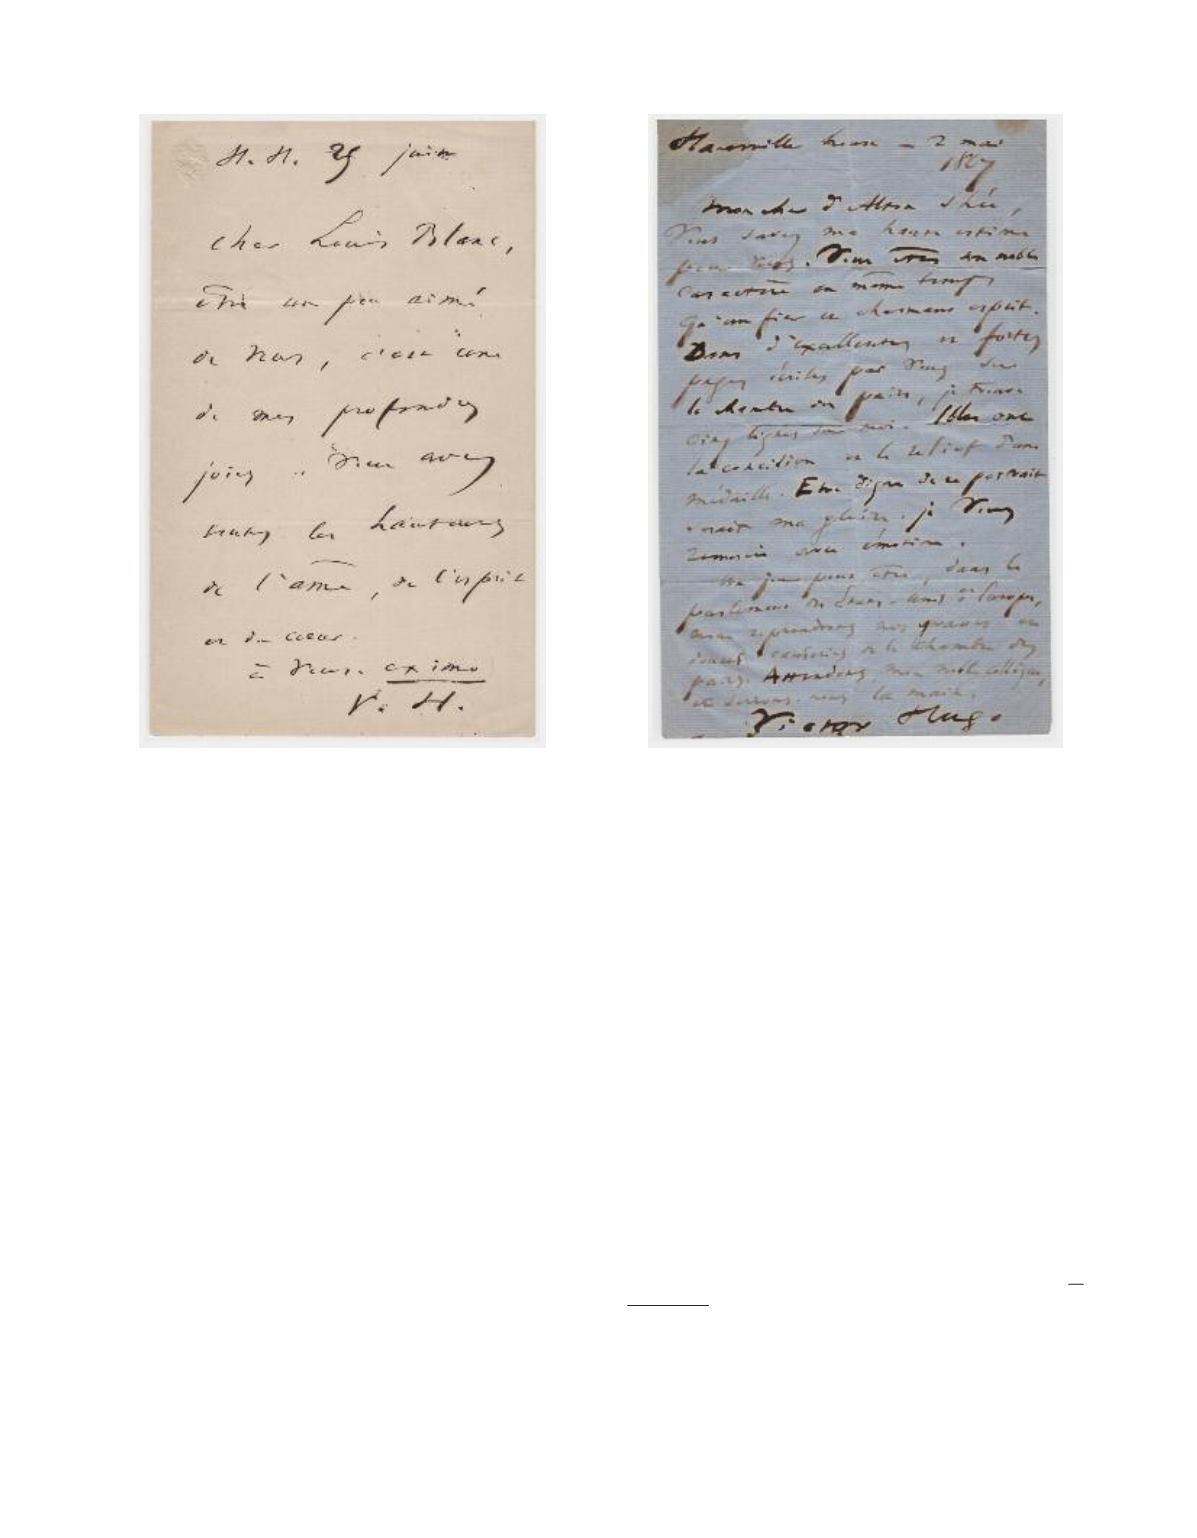 H. H. 25 juin
cher Louis Blanc,
être un peu aimé
de vous, c'est une
de mes profondes
joies. Vous avez
toutes les hauteurs
de l'âme, de l'esprit
et du cœur.
à vous. ex imo
V. H.
Hauteville house – 2 mai
1867
Mon cher d'Alton Shée,
Vous savez ma haute estime
pour vous. Vous êtes un noble
caractère en même temps
qu'un fier et charmant esprit.
Dans d'excellentes et fortes
pages écrites par vous sur
la chambre des pairs, je trouve
cinq lignes sur moi. Elles ont
la concision et le relief d'une
médaille. Etre digne de ce portrait
serait ma gloire. je vous
remercie avec émotion.
Un jour peut être, dans le
parlement des Etats-Unis d'Europe,
nous reprendrons nos graves et
douces causeries de la chambre des
pairs. Attendons, mon noble collègue,
et serrons-nous la main.
Victor Hugo